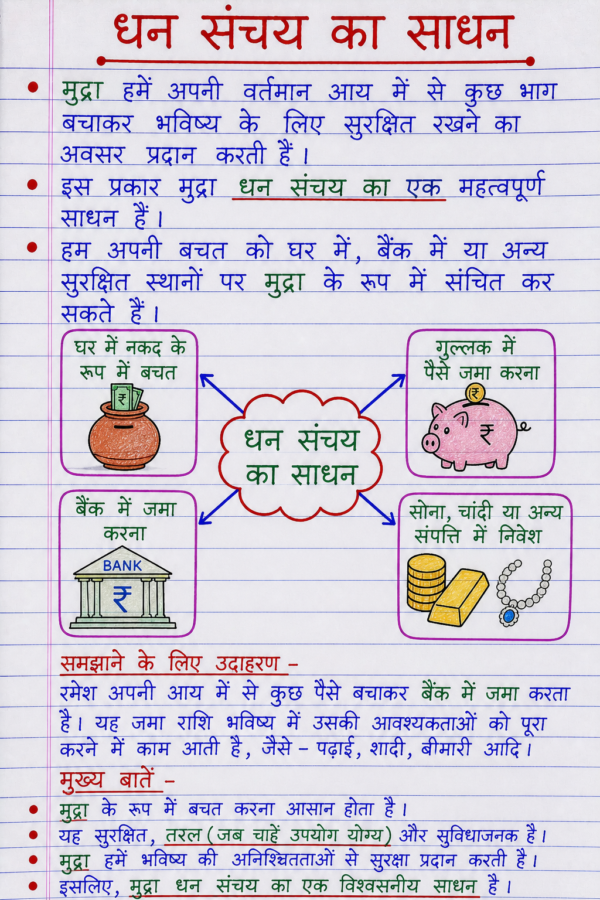 धन संचय का साधन
• मुद्रा हमें अपनी वर्तमान आय में से कुछ भाग
बचाकर भविष्य के लिए सुरक्षित रखने का
अवसर प्रदान करती हैं।
• इस प्रकार मुद्रा धन संचय का एक महत्वपूर्ण
साधन हैं।
• हम अपनी बचत को घर में, बैंक में या अन्य
सुरक्षित स्थानों पर मुद्रा के रूप में संचित कर
सकते हैं।
घर में नकद के
रूप में बचत
₹
गुल्लक में
पैसे जमा करना
₹
₹
धन संचय
का साधन
बैंक में जमा
करना
BANK
₹
सोना, चांदी या अन्य
संपत्ति में निवेश
समझाने के लिए उदाहरण –
रमेश अपनी आय में से कुछ पैसे बचाकर बैंक में जमा करता
है। यह जमा राशि भविष्य में उसकी आवश्यकताओं को पूरा
करने में काम आती है, जैसे – पढ़ाई, शादी, बीमारी आदि।
मुख्य बातें –
• मुद्रा के रूप में बचत करना आसान होता है।
• यह सुरक्षित, तरल (जब चाहें उपयोग योग्य) और सुविधाजनक है।
• मुद्रा हमें भविष्य की अनिश्चितताओं से सुरक्षा प्रदान करती है।
• इसलिए, मुद्रा धन संचय का एक विश्वसनीय साधन है।